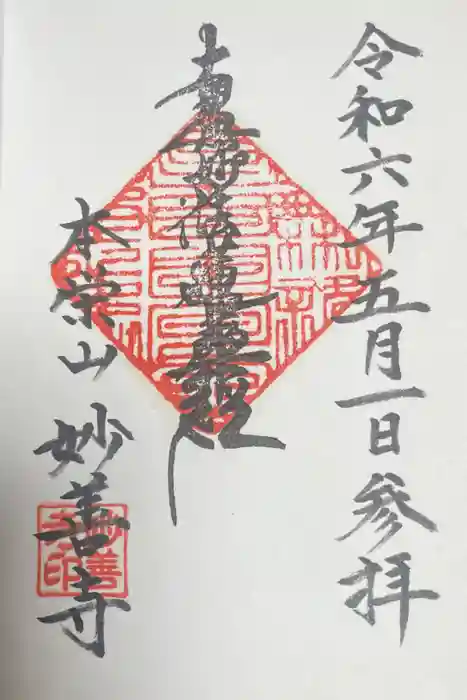 令和六年五月一日参拝
南無妙法蓮華経
本栄山
妙善寺
妙善
寺印